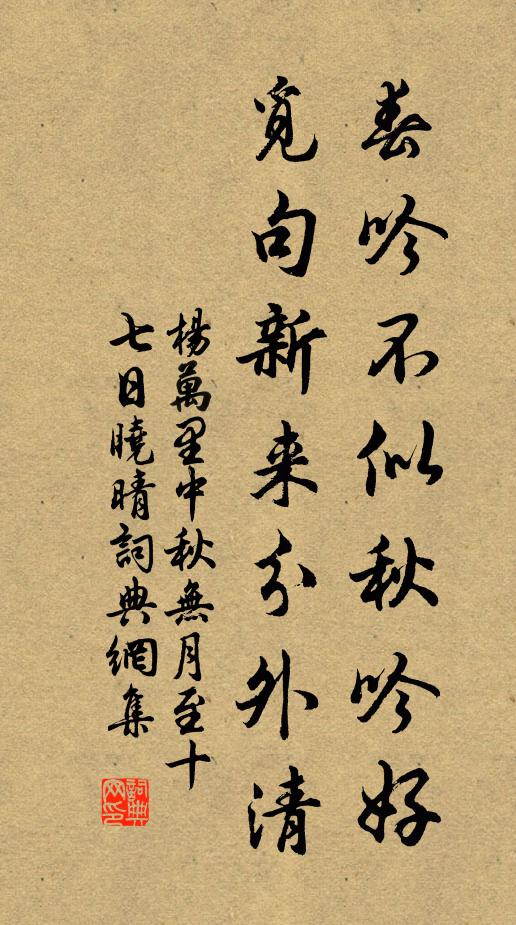 春吟不似秋吟好
覓句新来分外清
楊萬里中秋無月至十
七日曉晴詞典網集
詞典
网印